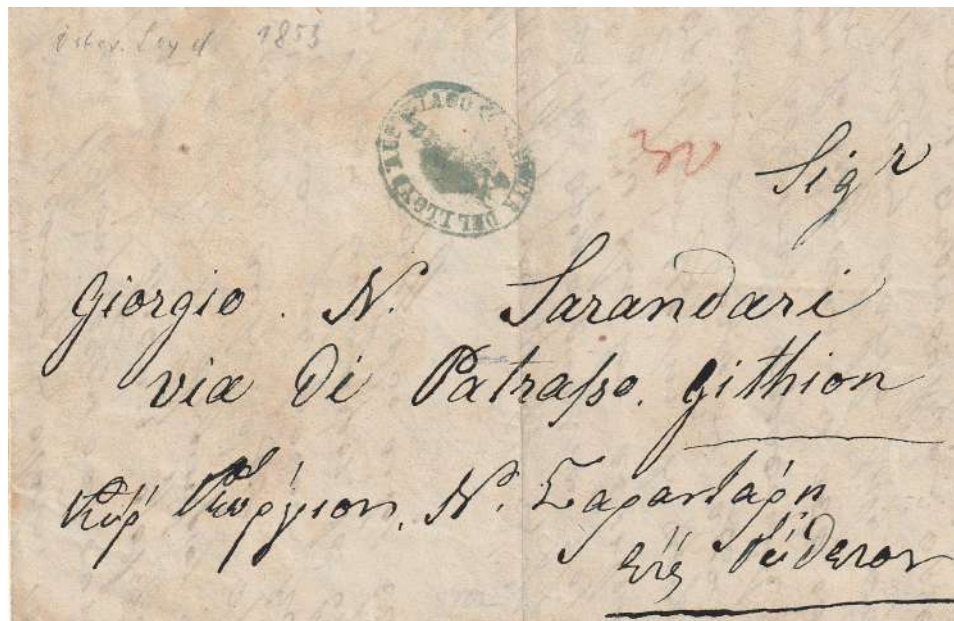 1853
30
Sig^r
Giorgio. N. Sarandari
via di Patrasso. Githion
Κύρ Γεώργιον. Ν. Σαραντάρη
Εἰς Γύθειον